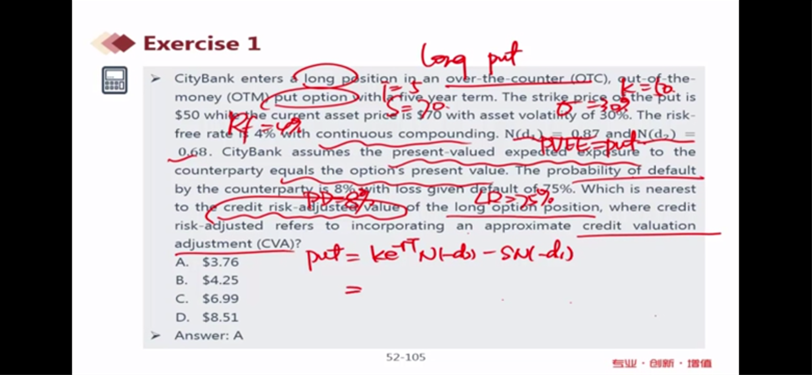 Exercise 1
long put
CityBank enters a long position in an over-the-counter (OTC), out-of-the-
T=5
K=50
money (OTM) put option with a five year term. The strike price of the put is
S=70
σ=30%
$50 while the current asset price is $70 with asset volatility of 30%. The risk-
Rf=4%
free rate is 4% with continuous compounding. N(d₁) = 0.87 and N(d₂) =
PVEE=put
0.68. CityBank assumes the present-valued expected exposure to the
counterparty equals the option's present value. The probability of default
by the counterparty is 8% with loss given default of 75%. Which is nearest
PD=8%
LR=75%
to the credit risk-adjusted value of the long option position, where credit
risk-adjusted refers to incorporating an approximate credit valuation
adjustment (CVA)?
put = Ke^-rT N(-d₂) - SN(-d₁)
=
A. $3.76
B. $4.25
C. $6.99
D. $8.51
Answer: A
52-105
专业·创新·增值